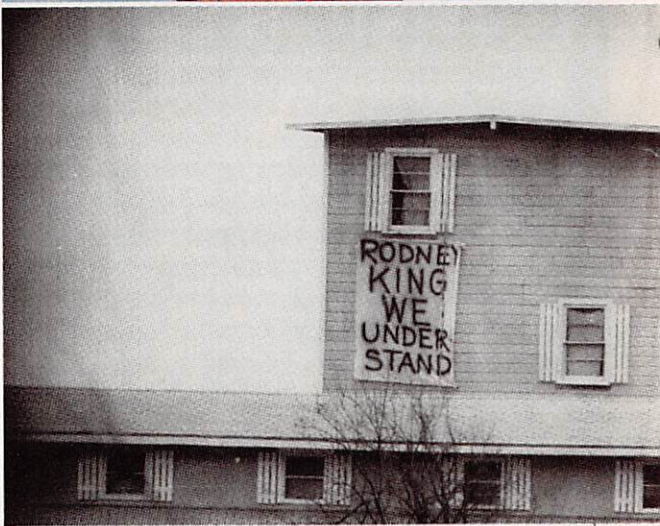 RODNEY
KING
WE
UNDER
STAND